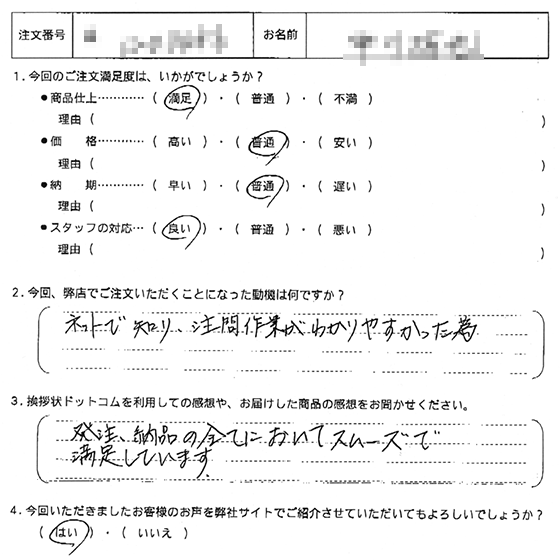 注文番号 お名前
1.今回のご注文満足度は、いかがでしょうか？
●商品仕上…………( 満足 )・( 普通 )・( 不満 )
理由 ( )
●価　格…………( 高い )・( 普通 )・( 安い )
理由 ( )
●納　期…………( 早い )・( 普通 )・( 遅い )
理由 ( )
●スタッフの対応…( 良い )・( 普通 )・( 悪い )
理由 ( )
2.今回、弊店でご注文いただくことになった動機は何ですか？
ネットで知り、注問作業がわかりやすかった為
3.挨拶状ドットコムを利用しての感想や、お届けした商品の感想をお聞かせください。
発注、納品の全てにおいてスムーズで
満足しています.
4.今回いただきましたお客様のお声を弊社サイトでご紹介させていただいてもよろしいでしょうか？
( はい )・( いいえ )